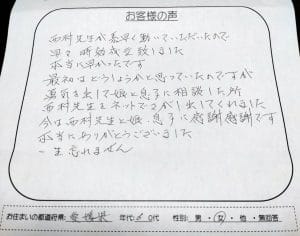 お客様の声
西村先生が素早く動いていただいたので
早々時効成立致しました
本当に早かったです
最初はどうしようかと思っていたのですが
勇気を出して娘と息子に相談した所
西村先生をネットでさがし出してくれました
今は西村先生と娘、息子に感謝感謝です
本当にありがとうございました
一生忘れません
お住まいの都道府県: 愛媛県 年代: 0代 性別: 男・女・他・無回答